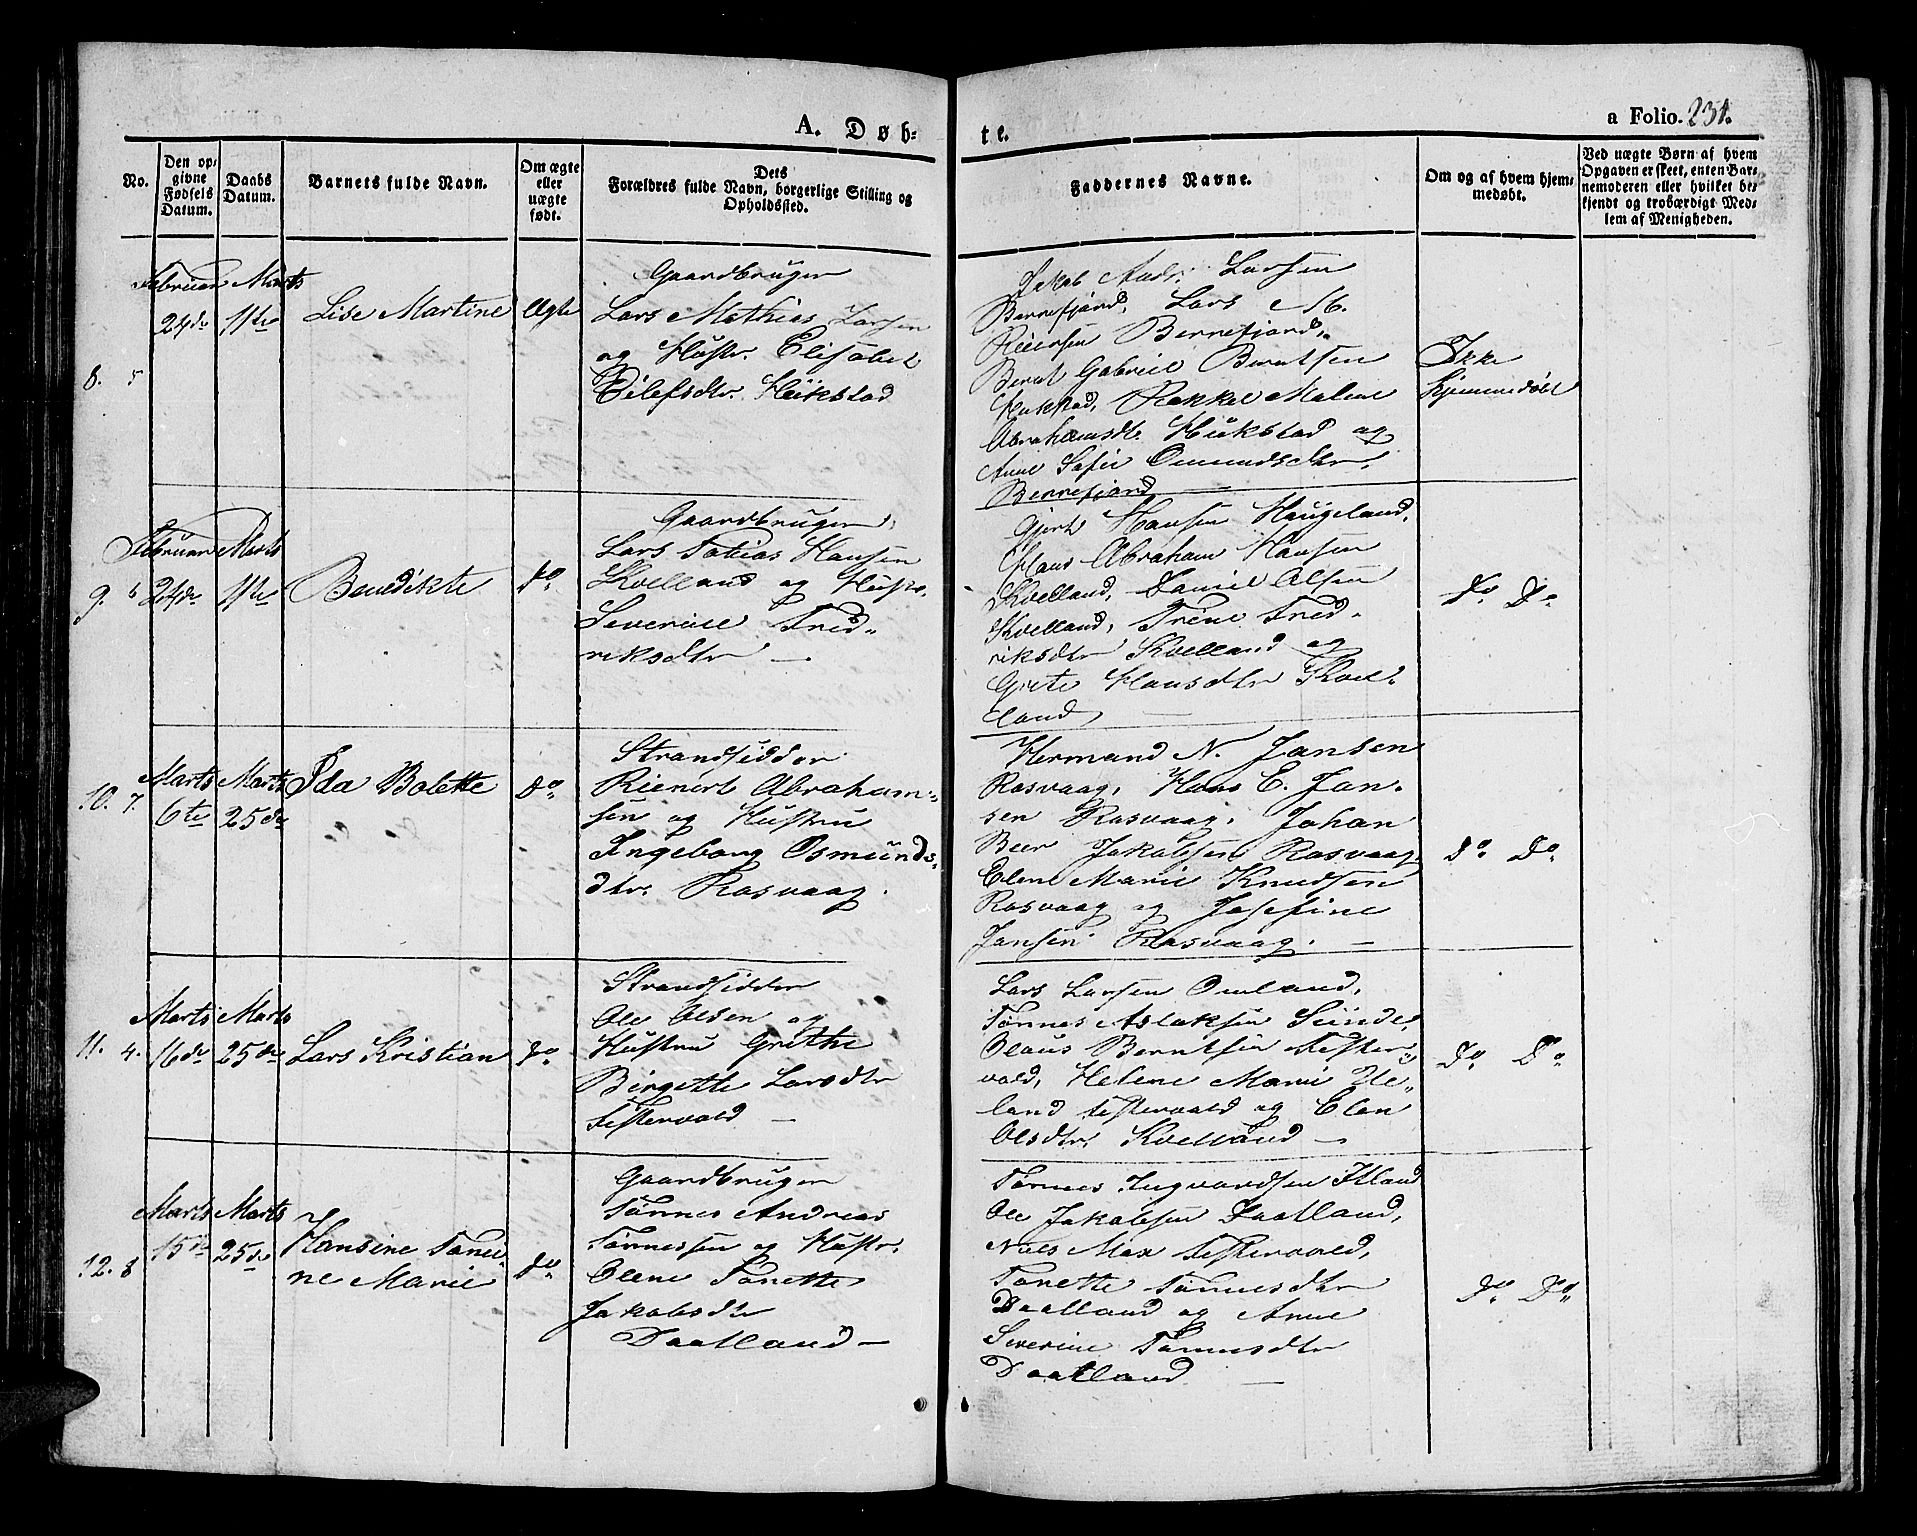 A. Døb-
te.
a Folio. 231.
No.
Den op-
givne
Fødsels
Datum.
Daabs
Datum.
Barnets fulde Navn.
Om ægte
eller
uægte
født.
Dets
Forældres fulde Navn, borgerlige Stilling og
Opholdssted.
Faddernes Navne.
Om og af hvem hjem-
medøbt.
Ved uægte Børn af hvem
Opgaven er skeet, enten Bar-
nemoderen eller hvilket be-
kjendt og troværdigt Med-
lem af Menigheden.
8. 5
Februar
24de
Marts
11te
Lise Martine
Ægte
Gaardbruger
Lars Mathias Larsen
og Hustr. Elisabet
Eilefsdtr. Höikstad
Jakob Andr. Larsen
Bernefjord, Lars M.
Reiersen Bernefjord,
Bernt Gabriel Berntsen
Rakkel Malene
Abrahamsdtr. Höikstad og
Anne Sofie Omundsdtr.
Bernefjord
Ikke
hjemmedøbt
9. 6
Februar
24de
Marts
11te
Benedikte
Do.
Gaardbruger
Lars Tobias Hansen
Kvelland og Hustr.
Severine Fred-
riksdtr —
Gjert Hansen Haugeland,
Hans Abraham Hansen
Kvelland, Daniel Olsen
Kvelland, Trine Fred-
riksdtr Kvelland og
Grete Hansdtr Kvel-
land
Do. Do.
10. 7.
Marts
6te
Marts
25de
Ida Bolette
Do.
Strandsidder
Rienert Abraham-
sen og Hustru
Ingeborg Osmunds-
dtr. Rasvaag.
Hermand N. Jansen
Rasvaag, Hans E. Jan-
sen Rasvaag, Johan
Beer Jakobsen Rasvaag,
Elene Marie Knudsen
Rasvaag og Josefine
Jansen Rasvaag. —
Do. Do.
11. 4.
Marts
16de
Marts
25de
Lars Kristian
Do.
Strandsidder
Ole Olsen og
Hustru Grethe
Birgette Larsdtr
Festervold —
Lars Larsen Omland,
Tönnes Aslaksen Sunde,
Olaus Berntsen Fester-
vold, Helene Marie Ue-
land Festervold og Elen
Olsdtr. Kvelland —
Do. Do.
12. 8
Marts
15de
Marts
25de
Hansine Tomi-
ne Marie
Do.
Gaardbruger
Tönnes Andreas
Tönnessen og Hustr.
Olene Tonette
Jakobsdtr
Daatland —
Tönnes Ingvardsen Itland
Ole Jakobsen Daatland,
Niels Max Festervold,
Tonette Tönnesdtr
Daatland og Anne
Severine Tönnesdtr
Daatland —
Do. Do.